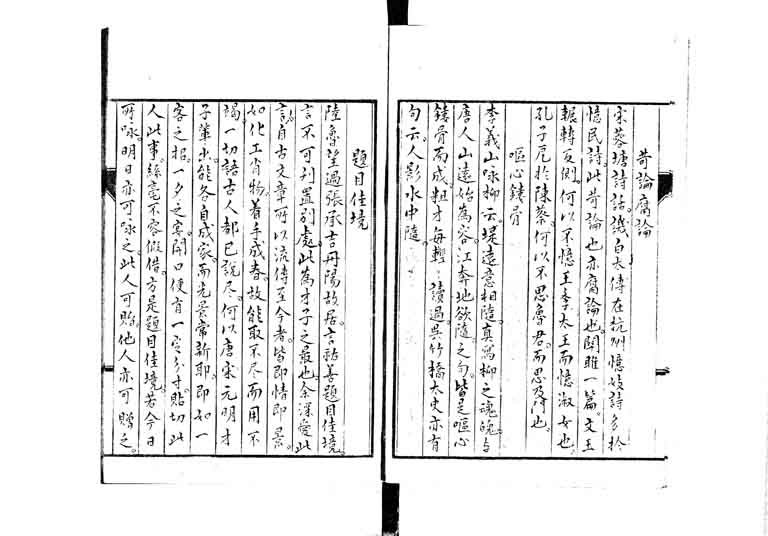 苛論腐論
宋蓉塘詩話。譏白太傅在杭州憶妓詩多於
憶民詩。此苛論也。亦腐論也。関雎一篇。文王
輾轉反側。何以不憶王季太王。而憶淑女也。
孔子厄於陳蔡。何以不思魯君。而思及門也。
嘔心鏤骨
李義山咏柳云。堤遠意相隨。真寫柳之魂魄。与
唐人山遠始為容。江奔地欲隨之句。皆是嘔心
鏤骨而成。粗才每輕輕讀過。吳竹橋太史亦有
句云。人影水中隨。
題目佳境
陸魯望過張承吉丹陽故居。言祜善題目佳境。
言不可刊置別處。此為才子之最也。余深愛此
言。自古文章所以流傳至今者。皆即情即景。
如化工肖物。着手成春。故能取不尽而用不
竭。一切語古人都已說尽。何以唐宋元明才
子輩出。能各自成家。而光景常新耶。即如一
客之招。一夕之宴。開口便有一定分寸。貼切此
人此事。絲毫不容假借。方是題目佳境。若今日
所咏明日亦可咏之。此人可贈。他人亦可贈之。